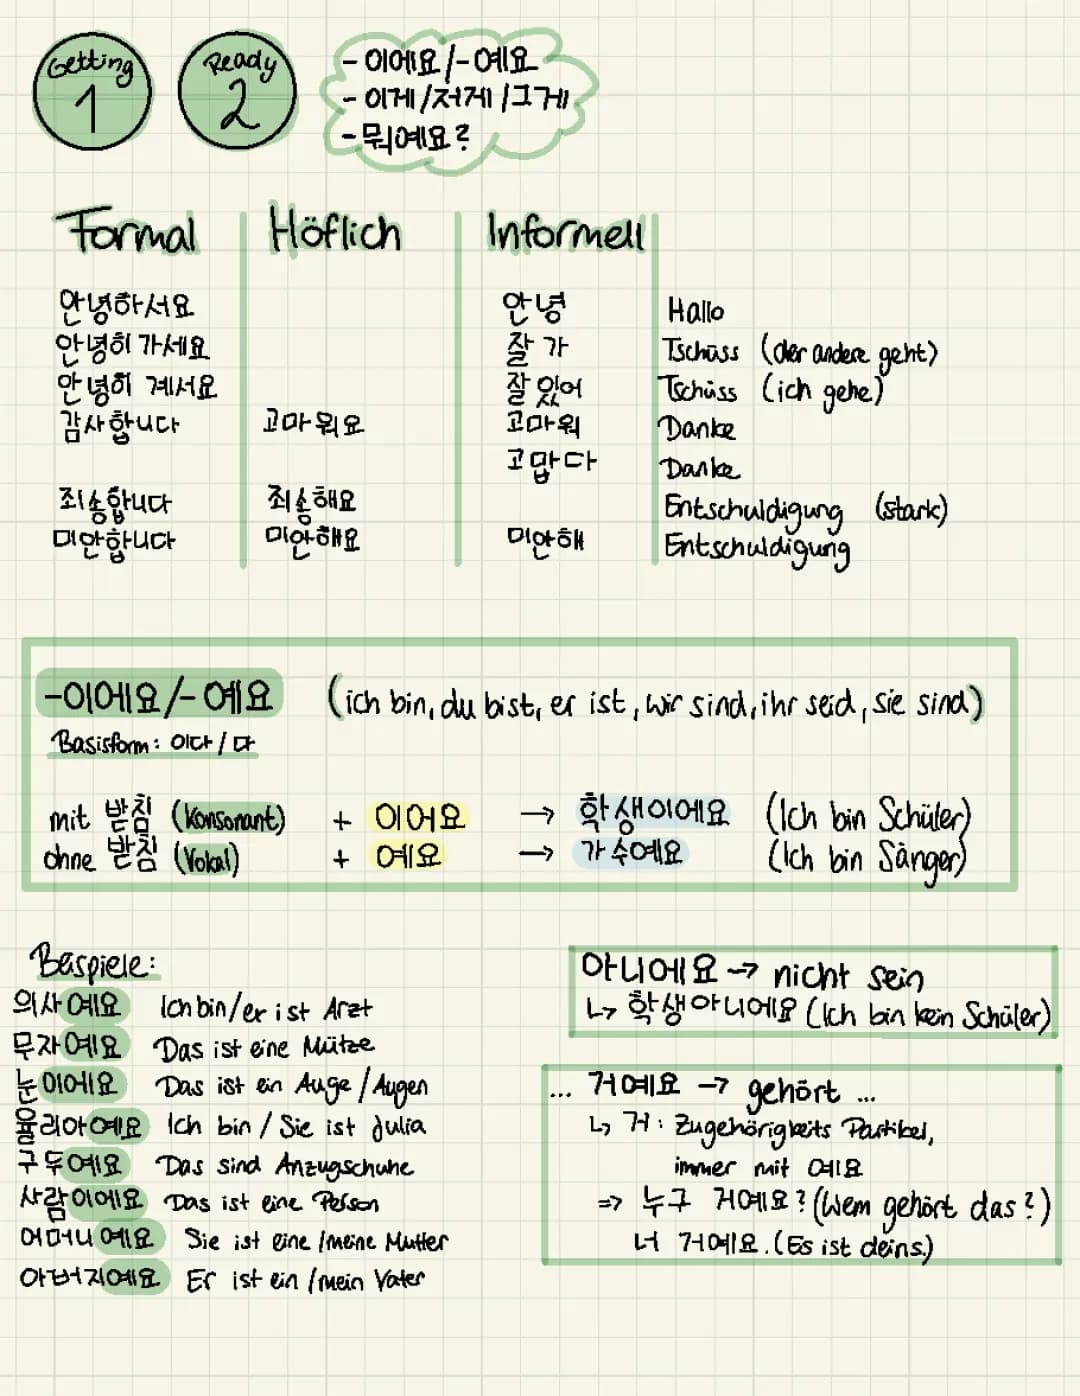 Getting 1
Ready 2
- 이에요/-예요
- 이게/저게/그게
- 뭐예요?
Formal Höflich Informell
안녕하서요 안녕 Hallo
안녕히 가세요 잘 가 Tschüss (der andere geht)
안녕히 계서요 잘 있어 Tschüss (ich gehe)
감사합니다 고마워요 고마워 Danke
고맙다 Danke
죄송합니다 죄송해요 Entschuldigung (stark)
미안합니다 미안해요 미안해 Entschuldigung
-이에요/-예요 (ich bin, du bist, er ist, wir sind, ihr seid, sie sind)
Basisform: 이다/다
mit 받침 (Konsonant) + 이어요 → 학생이에요 (Ich bin Schüler)
ohne 받침 (Vokal) + 예요 → 가수예요 (Ich bin Sänger)
Beispiele:
의사예요 Ich bin/er ist Arzt
무자예요 Das ist eine Mütze
눈이에요 Das ist ein Auge/Augen
율리아예요 Ich bin/Sie ist Julia
구두예요 Das sind Anzugschuhe
사람이에요 Das ist eine Person
어머니예요 Sie ist eine/meine Mutter
아버지예요 Er ist ein/mein Vater
아니에요 → nicht sein
↳ 학생아니에요 (Ich bin kein Schüler)
... 거예요 → gehört ...
↳ 거: Zugehörigkeits Partikel,
immer mit 예요
⇒ 누구 거예요? (Wem gehört das?)
너 거예요. (Es ist deins.)